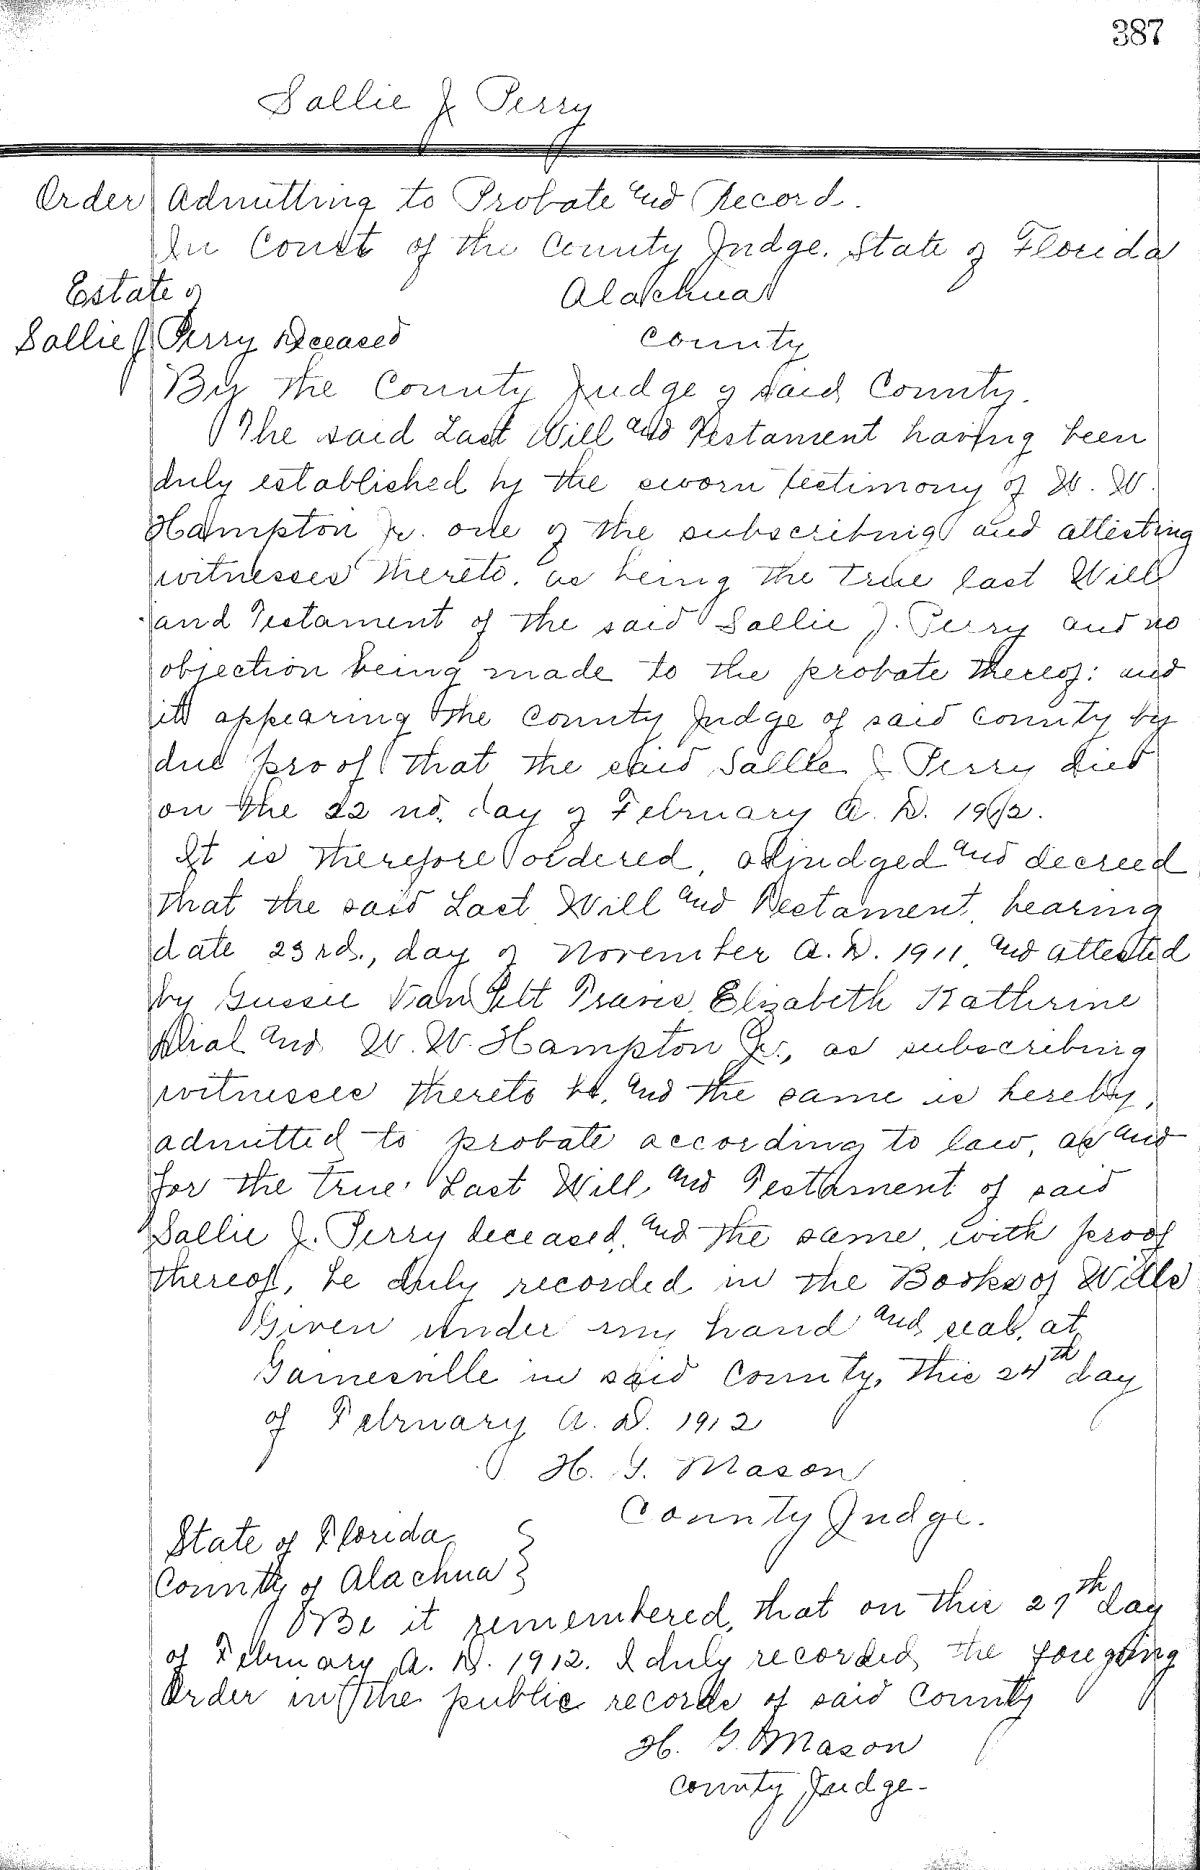 387
Sallie J Perry
Order Admitting to Probate and Record.
In Court of the County Judge. State of Florida
Estate of Alachua
Sallie J Perry Deceased County
By the County Judge of said County.
The said Last Will and Testament having been
duly established by the sworn testimony of W. W.
Hampton Jr. one of the subscribing and attesting
witnesses thereto. as being the true last Will
and Testament of the said Sallie J. Perry and no
objection being made to the probate thereof: and
it appearing the County Judge of said County by
due proof that the said Sallie J Perry died
on the 22 nd. day of February A. D. 1912.
It is therefore ordered, adjudged and decreed
that the said Last Will and Testament, bearing
date 23rd., day of November A. D. 1911, and attested
by Gussie Van Pelt Travis, Elizabeth Kathrine
Dial and W. W. Hampton Jr., as subscribing
witnesses thereto be, and the same is hereby,
admitted to probate according to law, as and
for the true Last Will and Testament of said
Sallie J. Perry deceased, and the same, with proof
thereof, be duly recorded in the Books of Wills
Given under my hand and seal, at
Gainesville in said County, this 24th day
of February A. D. 1912
H. G. Mason
County Judge.
State of Florida }
County of Alachua }
Be it remembered, that on this 27th day
of February A. D. 1912. I duly recorded the foregoing
Order in the public records of said County
H. G. Mason
County Judge-